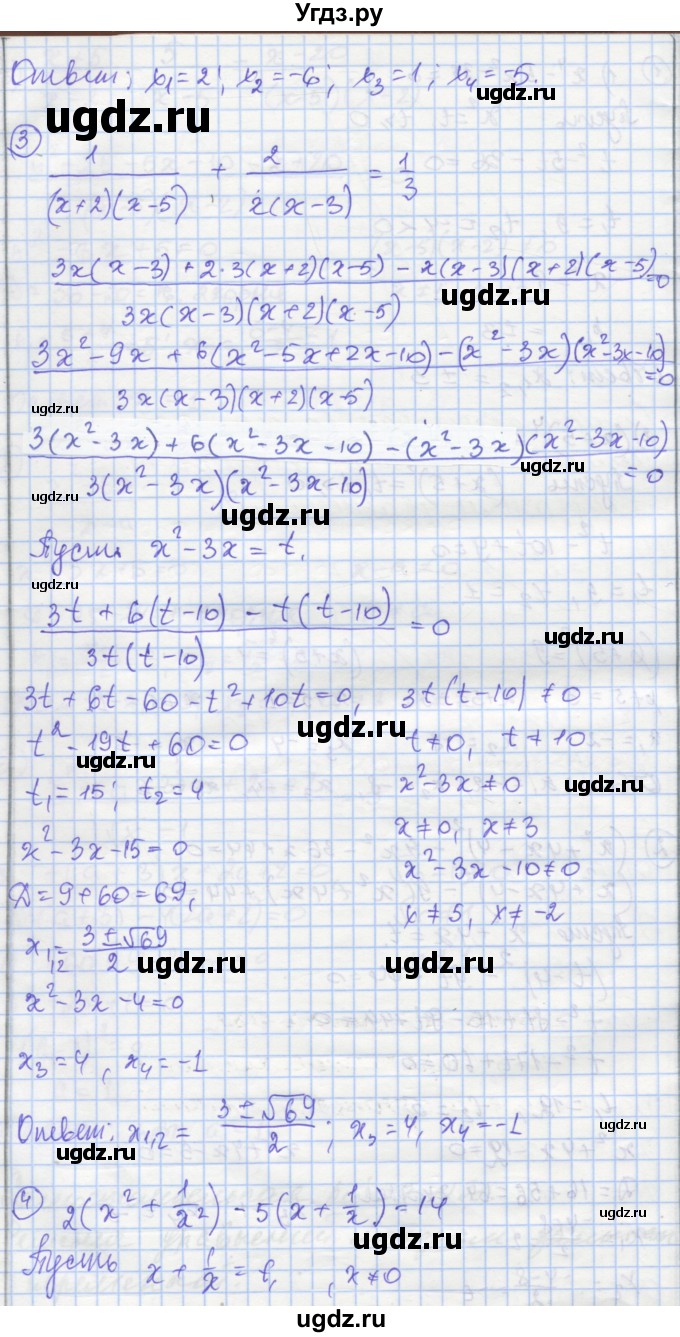 Угдз.ру
Ответ: x₁ = 2; x₂ = -6; x₃ = 1; x₄ = -5.
ugdz.ru
ugdz.ru
③ 1/((x+2)(x-5)) + 2/(x(x-3)) = 1/3
(3x(x-3) + 2·3(x+2)(x-5) - x(x-3)(x+2)(x-5))/(3x(x-3)(x+2)(x-5)) = 0
ugdz.ru
(3x² - 9x + 6(x² - 5x + 2x - 10) - (x² - 3x)(x² - 3x - 10))/(3x(x-3)(x+2)(x-5)) = 0
ugdz.ru
(3(x² - 3x) + 6(x² - 3x - 10) - (x² - 3x)(x² - 3x - 10))/(3(x² - 3x)(x² - 3x - 10)) = 0
ugdz.ru
ugdz.ru
ugdz.ru
Пусть x² - 3x = t,
ugdz.ru
(3t + 6(t-10) - t(t-10))/(3t(t-10)) = 0
ugdz.ru
3t + 6t - 60 - t² + 10t = 0, 3t(t-10) ≠ 0
t² - 19t + 60 = 0 t ≠ 0, t ≠ 10
ugdz.ru
t₁ = 15; t₂ = 4 x² - 3x ≠ 0
ugdz.ru
x² - 3x - 15 = 0 x ≠ 0, x ≠ 3
D = 9 + 60 = 69, x² - 3x - 10 ≠ 0
x₁,₂ = (3 ± √69)/2 x ≠ 5, x ≠ -2
ugdz.ru
ugdz.ru
x² - 3x - 4 = 0
x₃ = 4, x₄ = -1
Ответ: x₁,₂ = (3 ± √69)/2; x₃ = 4, x₄ = -1
ugdz.ru
ugdz.ru
④ 2(x² + 1/x²) - 5(x + 1/x) = 14
ugdz.ru
ugdz.ru
Пусть x + 1/x = t, , x ≠ 0
ugdz.ru